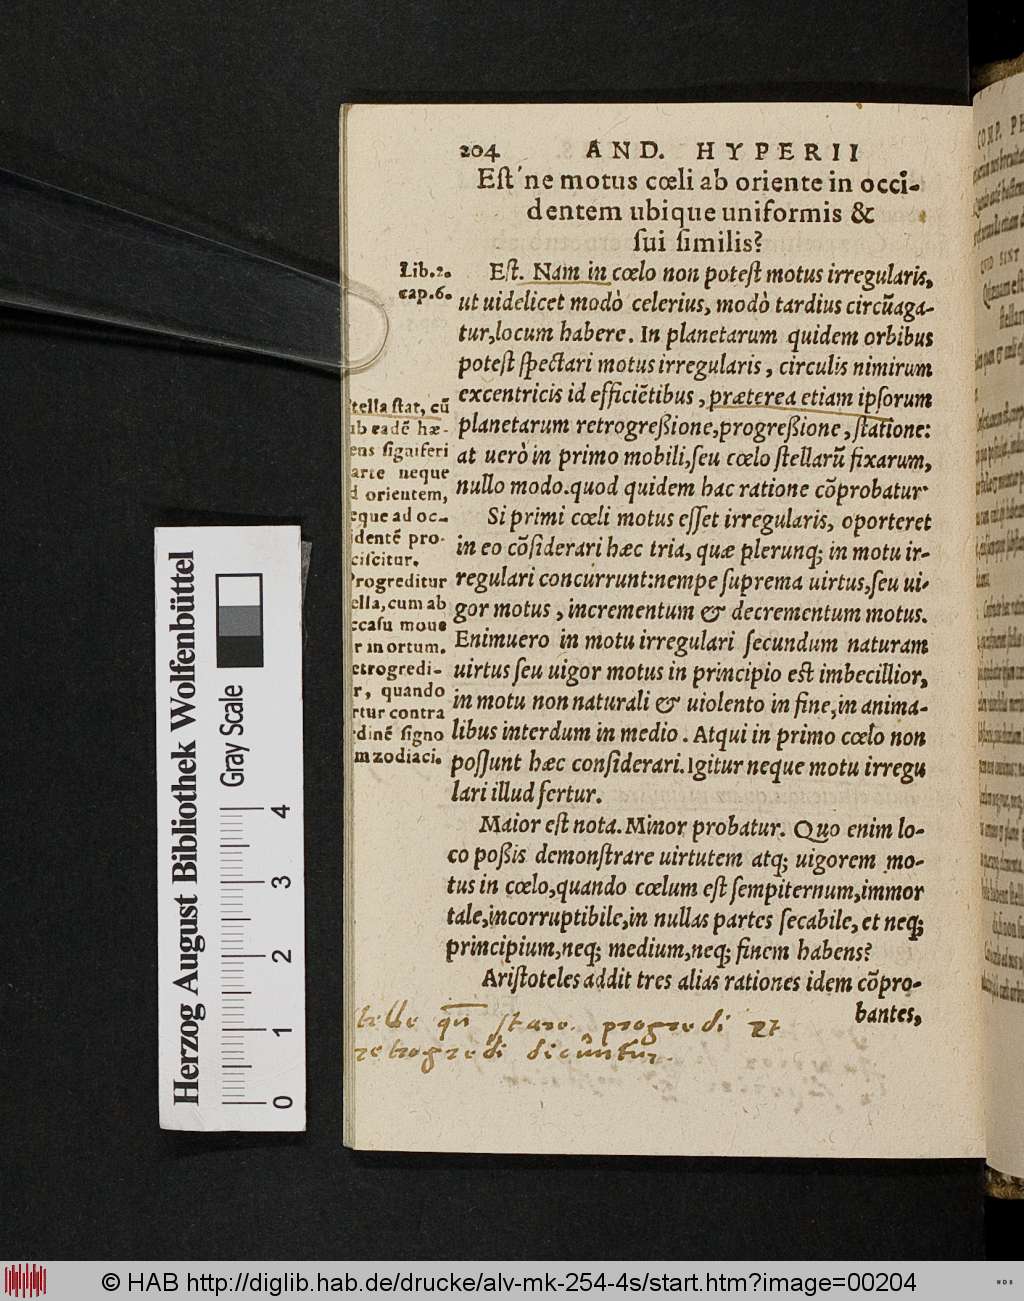 204 AND. HYPERII
Eſt'ne motus cœli ab oriente in occi-
dentem ubique uniformis &
ſui ſimilis?
Lib.2.
cap.6.
Eſt. Nam in cœlo non poteſt motus irregularis,
ut uidelicet modò celerius, modò tardius circũaga-
tur, locum habere. In planetarum quidem orbibus
poteſt ſpectari motus irregularis, circulis nimirum
excentricis id efficiẽtibus, præterea etiam ipſorum
planetarum retrogreßione, progreßione, ſtatione:
at uerò in primo mobili, ſeu cœlo ſtellarũ fixarum,
nullo modo. quod quidem hac ratione cõprobatur.
Si primi cœli motus eſſet irregularis, oporteret
in eo cõſiderari hæc tria, quæ plerunq; in motu ir-
regulari concurrunt: nempe ſuprema uirtus, ſeu ui-
gor motus, incrementum & decrementum motus.
Enimuero in motu irregulari ſecundum naturam
uirtus ſeu uigor motus in principio eſt imbecillior,
in motu non naturali & uiolento in fine, in anima-
libus interdum in medio. Atqui in primo cœlo non
poſſunt hæc conſiderari. Igitur neque motu irregu
lari illud fertur.
Maior eſt nota. Minor probatur. Quo enim lo-
co poßis demonſtrare uirtutem atq; uigorem mo-
tus in cœlo, quando cœlum eſt ſempiternum, immor
tale, incorruptibile, in nullas partes ſecabile, et neq;
principium, neq; medium, neq; finem habens?
Ariſtoteles addit tres alias rationes idem cõpro-
bantes,
ſtella ſtat, cũ
ub eadẽ hæ-
ens ſigniferi
arte neque
d orientem,
eque ad oc-
identẽ pro-
ciſcitur.
Progreditur
ella, cum ab
ccaſu moue
r in ortum.
etrogredi-
r, quando
rtur contra
rdinẽ ſigno
m zodiaci.
ſtelle qñ ſtare. progredi et
retrogredi dicuntur.
Herzog August Bibliothek Wolfenbüttel
Gray Scale
0 1 2 3 4
© HAB http://diglib.hab.de/drucke/alv-mk-254-4s/start.htm?image=00204